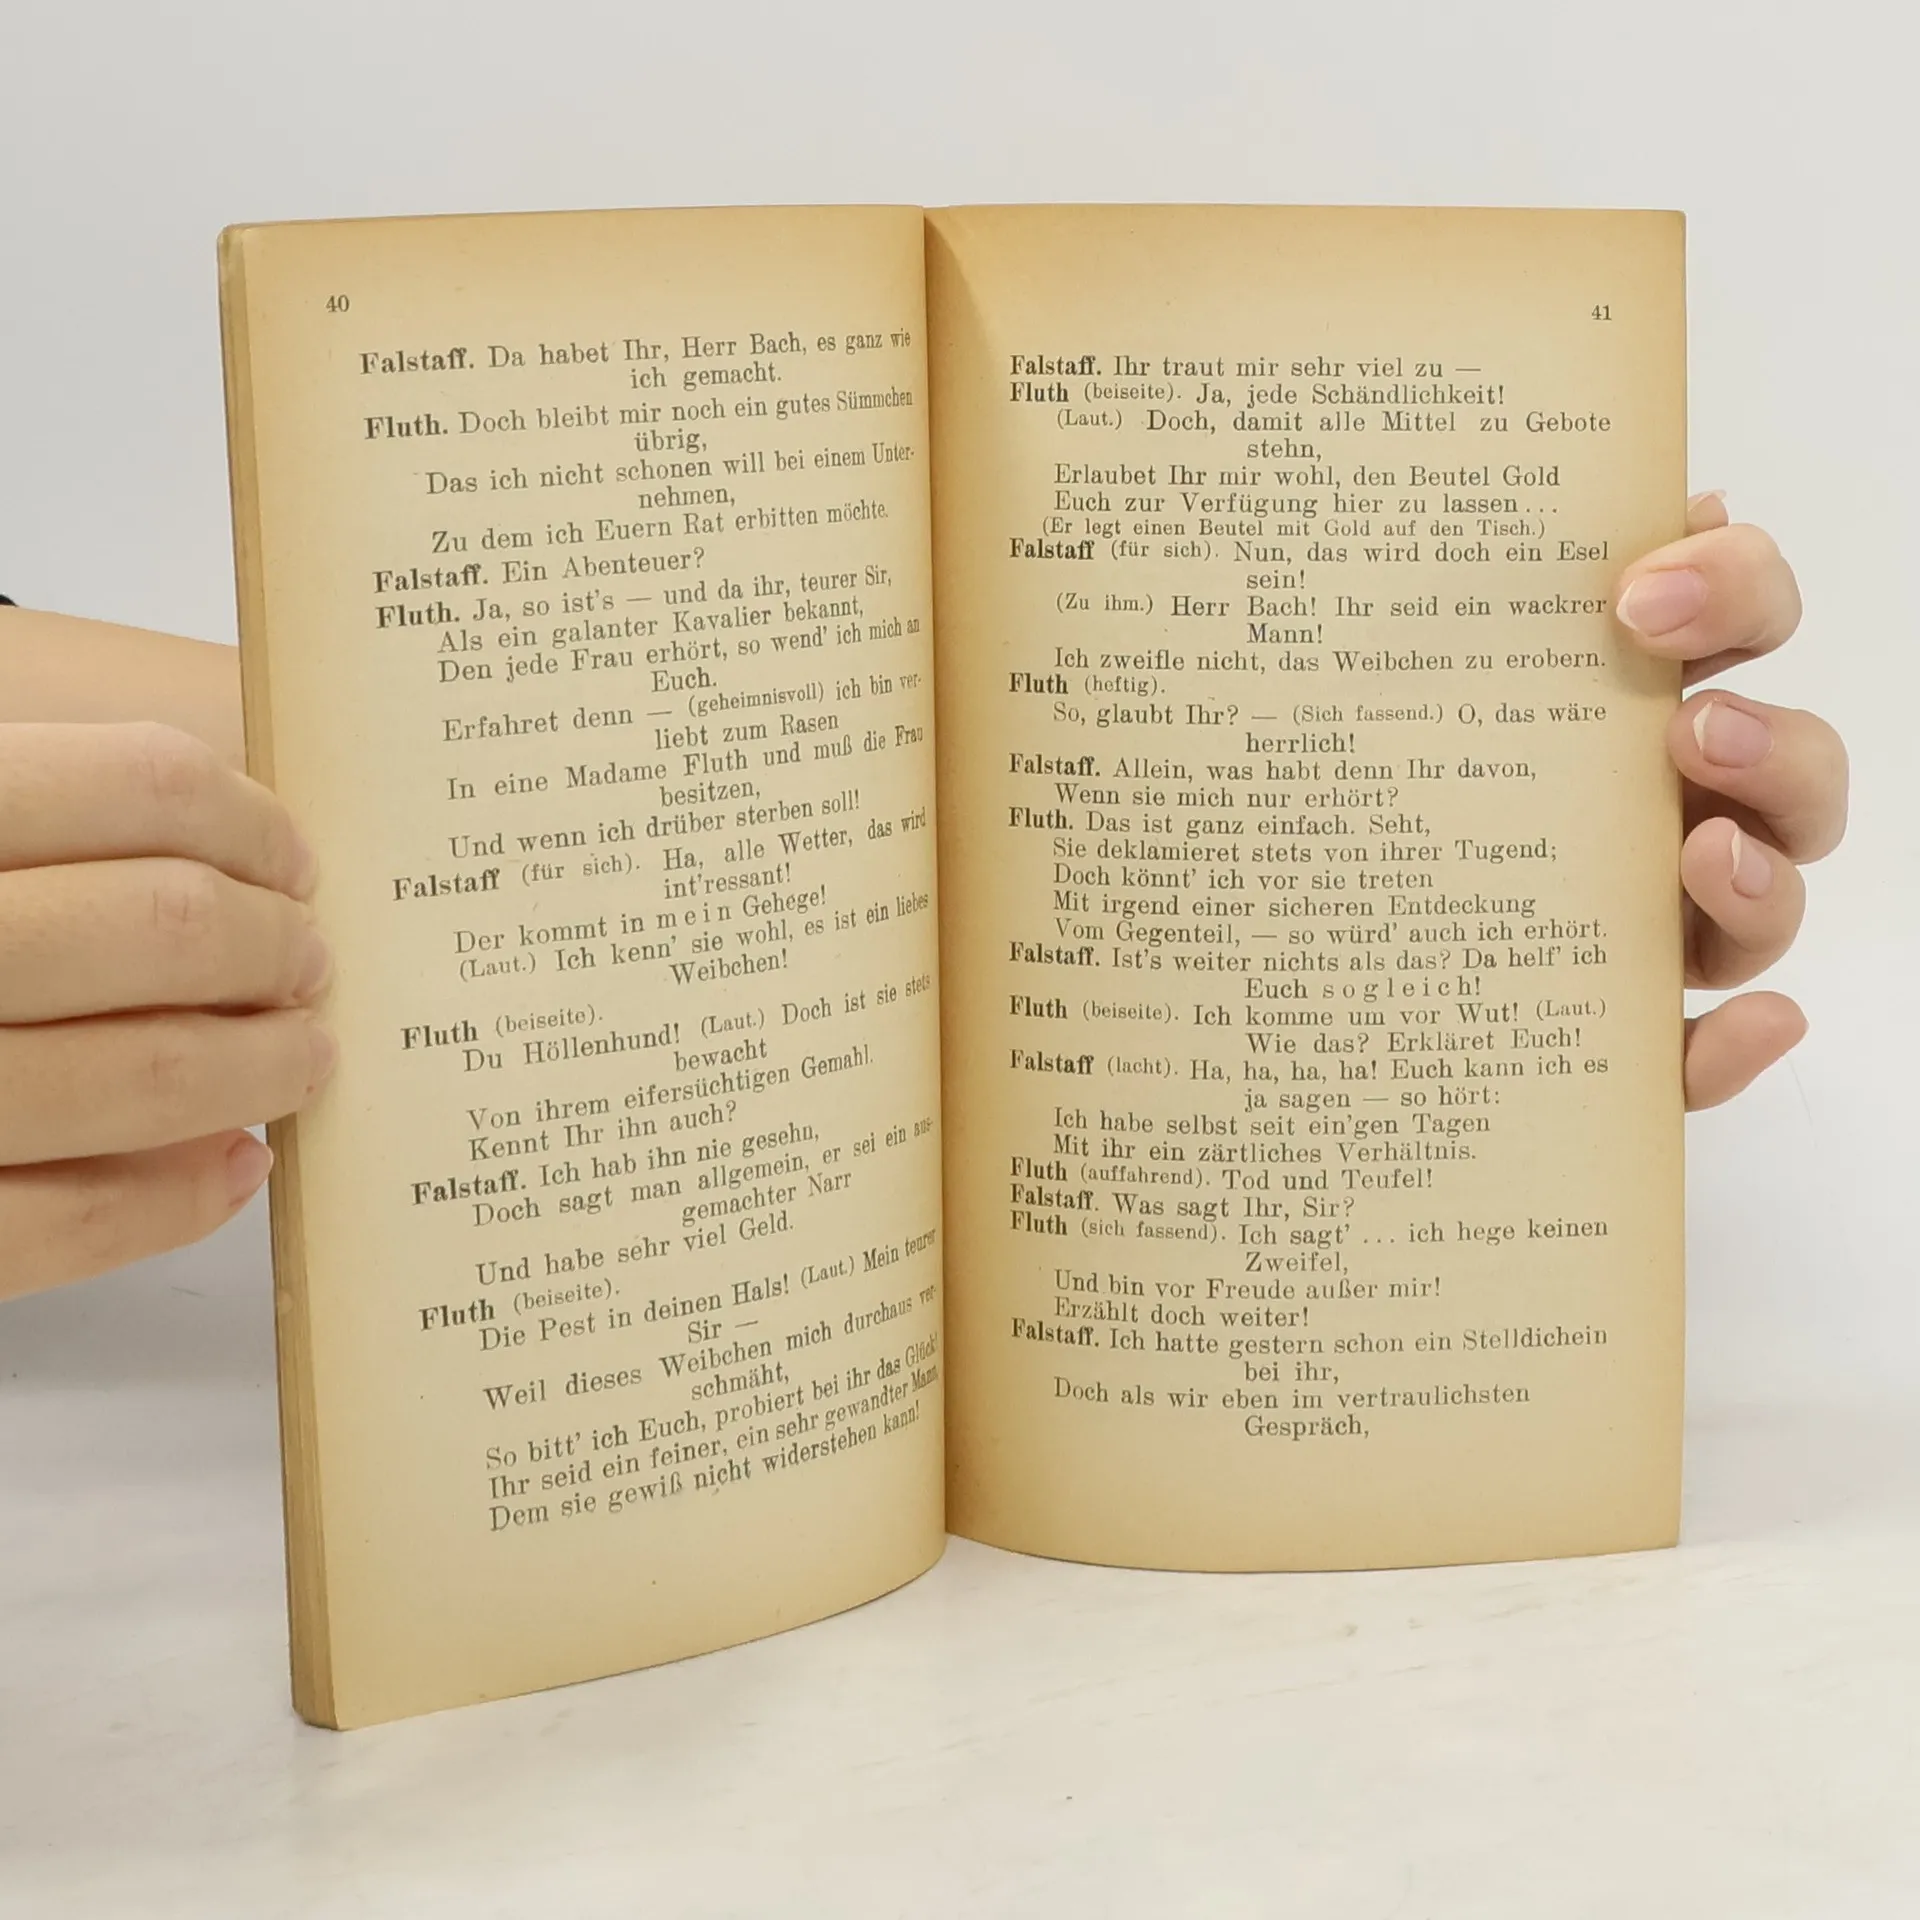 40
Falstaff. Da habet Ihr, Herr Bach, es ganz wie
ich gemacht.
Fluth. Doch bleibt mir noch ein gutes Sümmchen
übrig,
Das ich nicht schonen will bei einem Unter-
nehmen,
Zu dem ich Euern Rat erbitten möchte.
Falstaff. Ein Abenteuer?
Fluth. Ja, so ist's — und da ihr, teurer Sir,
Als ein galanter Kavalier bekannt,
Den jede Frau erhört, so wend' ich mich an
Euch.
Erfahret denn — (geheimnisvoll) ich bin ver-
liebt zum Rasen
In eine Madame Fluth und muß die Frau
besitzen,
Und wenn ich drüber sterben soll!
Falstaff (für sich). Ha, alle Wetter, das wird
int'ressant!
Der kommt in mein Gehege!
(Laut.) Ich kenn' sie wohl, es ist ein liebes
Weibchen!
Fluth (beiseite).
Du Höllenhund! (Laut.) Doch ist sie stets
bewacht
Von ihrem eifersüchtigen Gemahl.
Kennt Ihr ihn auch?
Falstaff. Ich hab ihn nie gesehn,
Doch sagt man allgemein, er sei ein aus-
gemachter Narr
Und habe sehr viel Geld.
Fluth (beiseite).
Die Pest in deinen Hals! (Laut.) Mein teurer
Sir —
Weil dieses Weibchen mich durchaus ver-
schmäht,
So bitt' ich Euch, probiert bei ihr das Glück!
Ihr seid ein feiner, ein sehr gewandter Mann,
Dem sie gewiß nicht widerstehen kann!
41
Falstaff. Ihr traut mir sehr viel zu —
Fluth (beiseite). Ja, jede Schändlichkeit!
(Laut.) Doch, damit alle Mittel zu Gebote
stehn,
Erlaubet Ihr mir wohl, den Beutel Gold
Euch zur Verfügung hier zu lassen...
(Er legt einen Beutel mit Gold auf den Tisch.)
Falstaff (für sich). Nun, das wird doch ein Esel
sein!
(Zu ihm.) Herr Bach! Ihr seid ein wackrer
Mann!
Ich zweifle nicht, das Weibchen zu erobern.
Fluth (heftig).
So, glaubt Ihr? — (Sich fassend.) O, das wäre
herrlich!
Falstaff. Allein, was habt denn Ihr davon,
Wenn sie mich nur erhört?
Fluth. Das ist ganz einfach. Seht,
Sie deklamieret stets von ihrer Tugend;
Doch könnt' ich vor sie treten
Mit irgend einer sicheren Entdeckung
Vom Gegenteil, — so würd' auch ich erhört.
Falstaff. Ist's weiter nichts als das? Da helf' ich
Euch sogleich!
Fluth (beiseite). Ich komme um vor Wut! (Laut.)
Wie das? Erkläret Euch!
Falstaff (lacht). Ha, ha, ha, ha! Euch kann ich es
ja sagen — so hört:
Ich habe selbst seit ein'gen Tagen
Mit ihr ein zärtliches Verhältnis.
Fluth (auffahrend). Tod und Teufel!
Falstaff. Was sagt Ihr, Sir?
Fluth (sich fassend). Ich sagt' ... ich hege keinen
Zweifel,
Und bin vor Freude außer mir!
Erzählt doch weiter!
Falstaff. Ich hatte gestern schon ein Stelldichein
bei ihr,
Doch als wir eben im vertraulichsten
Gespräch,